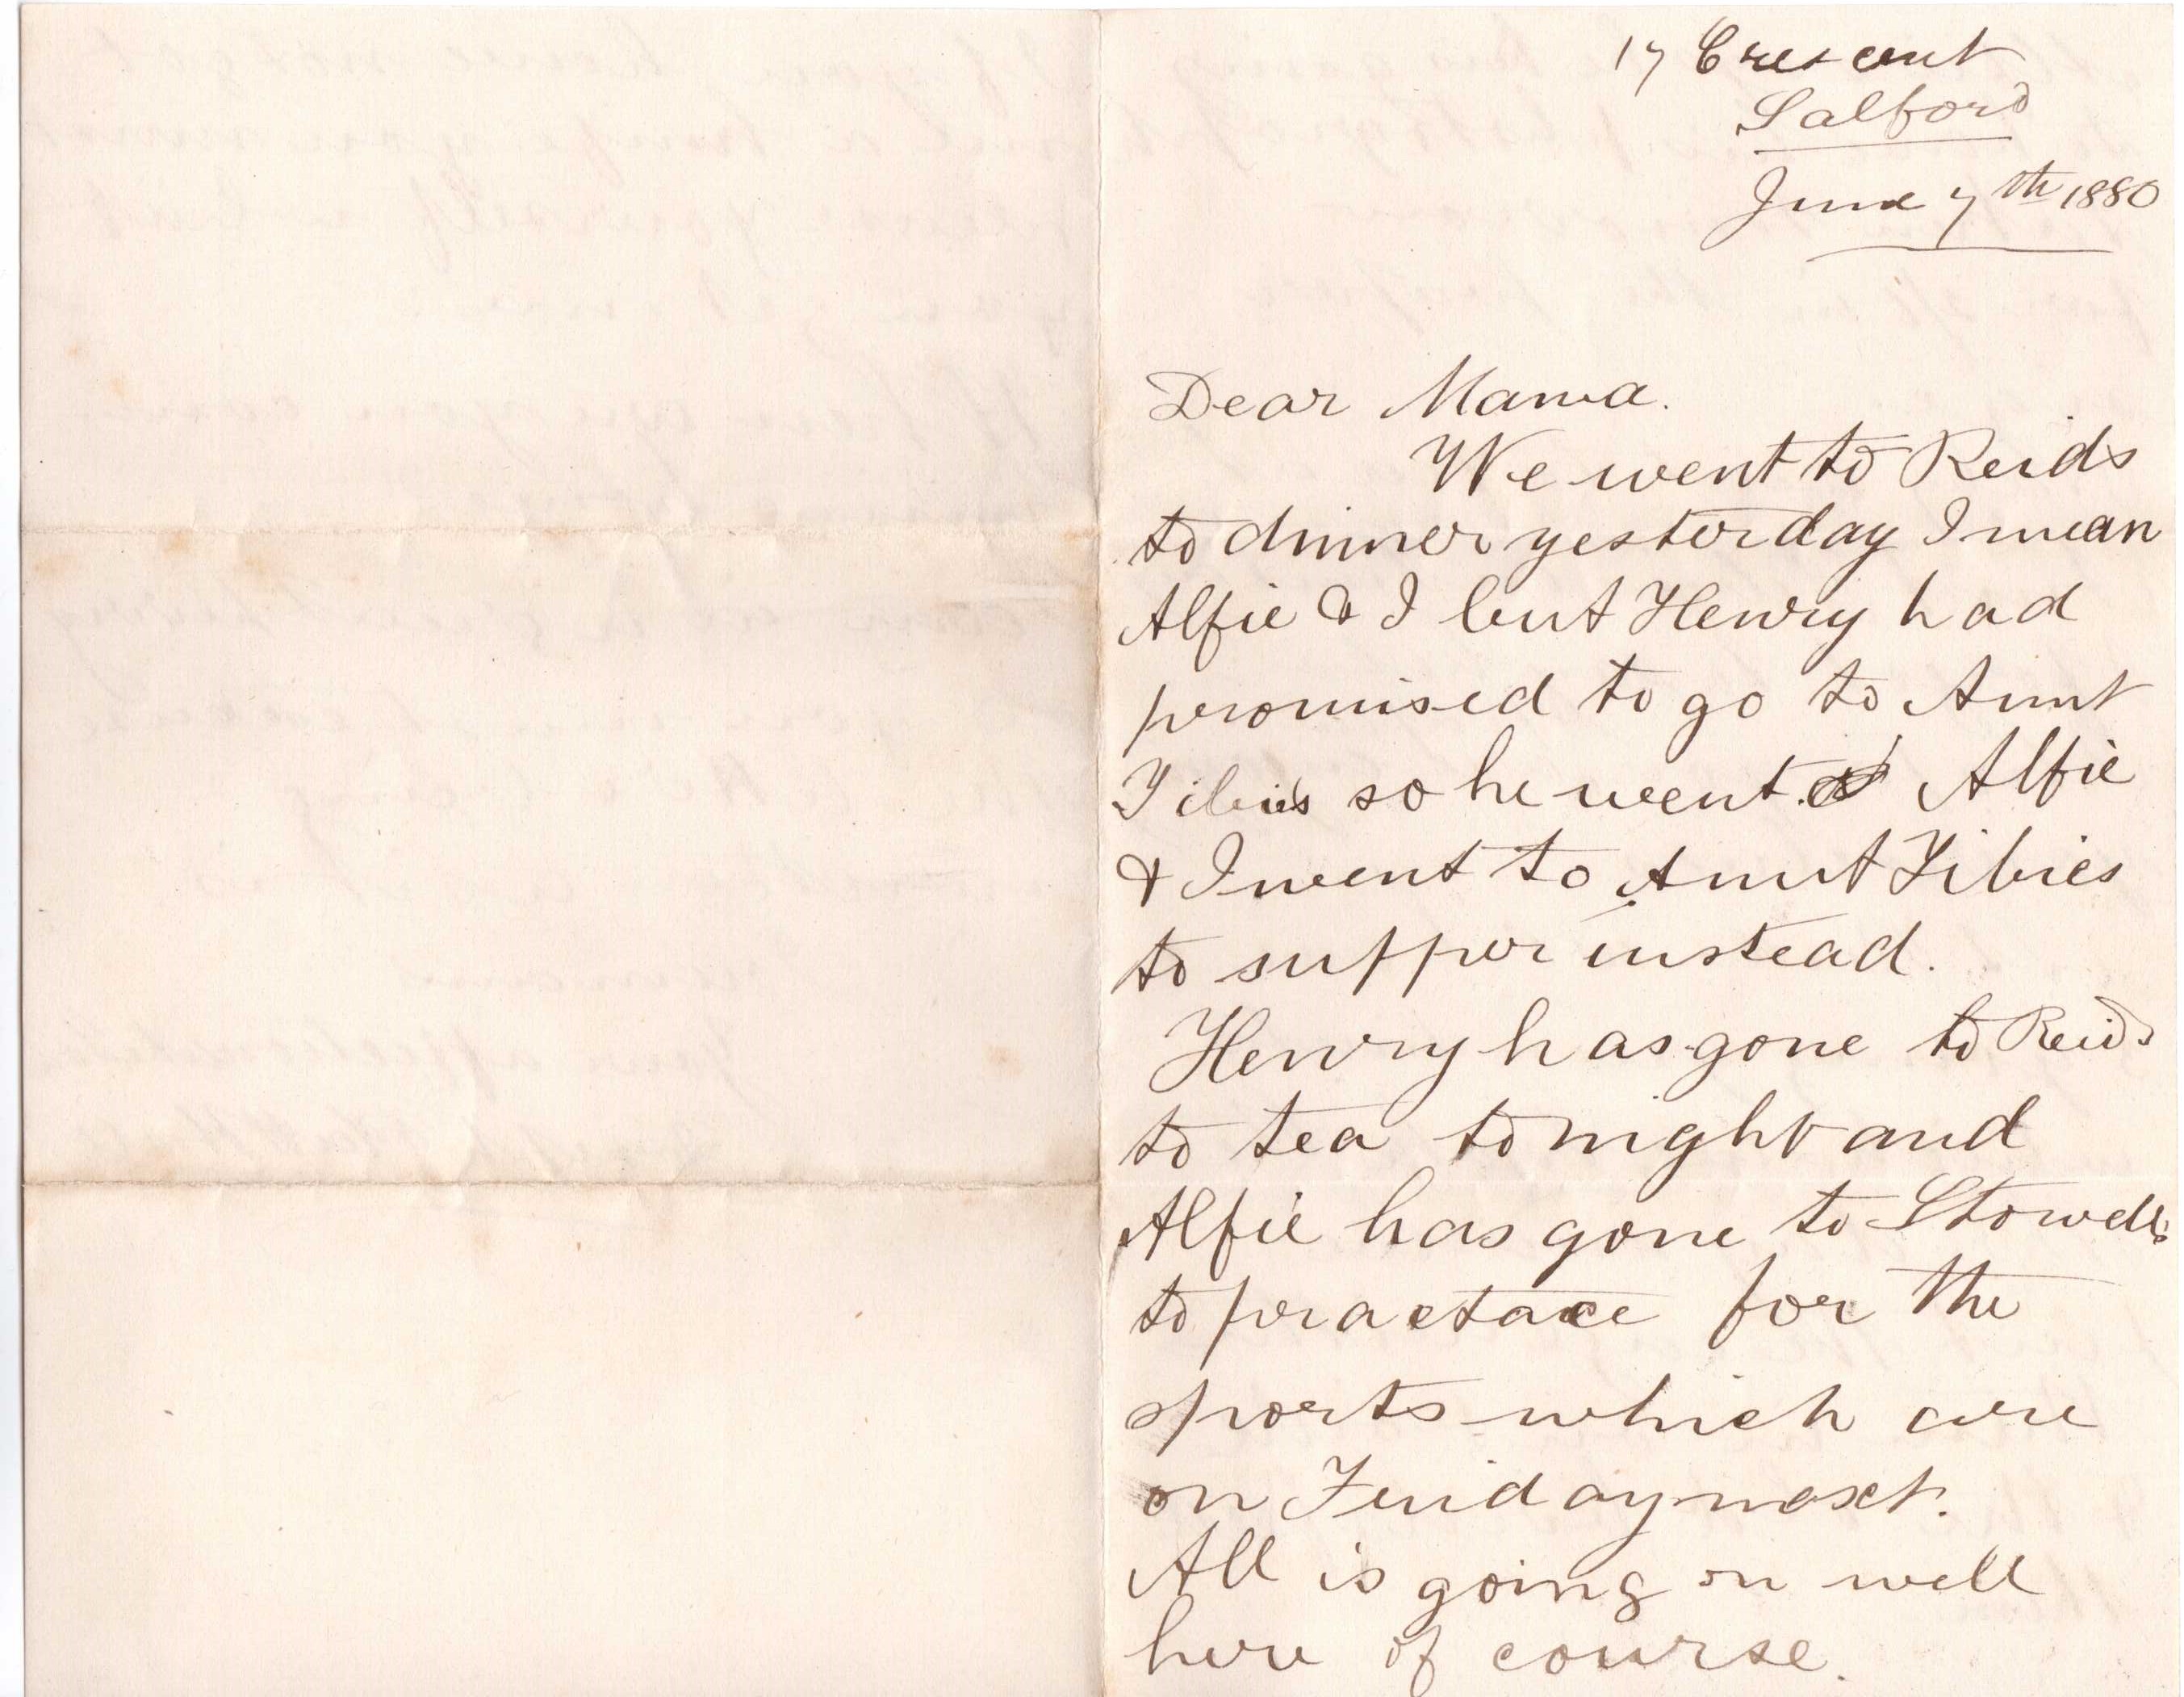 17 Crescent
Salford
June 7th 1880
Dear Mama.
We went to Reids
to dinner yesterday I mean
Alfie & I but Henry had
promised to go to Aunt
Tibies so he went & Alfie
& I went to Aunt Tibies
to supper instead.
Henry has gone to Reids
to tea to night and
Alfie has gone to Stowells
to practace for the
sports which are
on Friday next.
All is going on well
here of course.